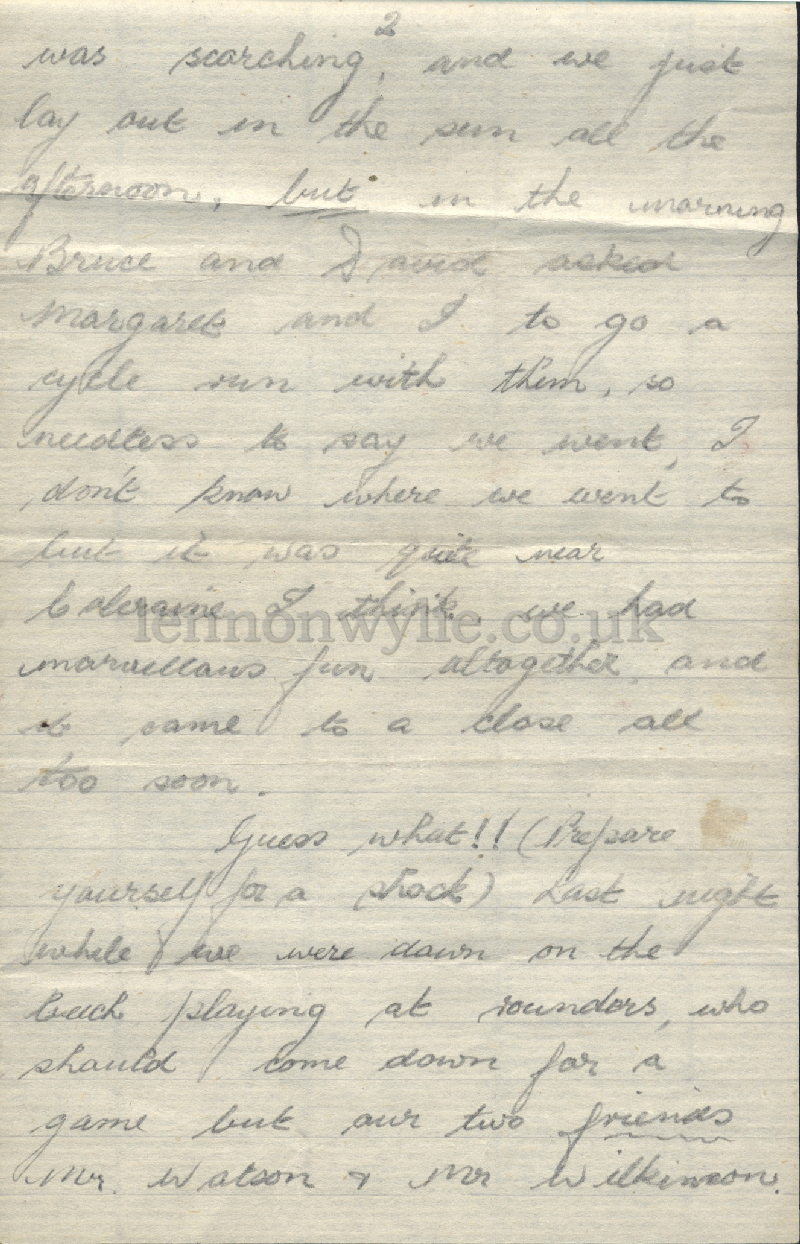 2
was scorching, and we just
lay out in the sun all the
afternoon, but in the morning
Bruce and David asked
Margaret and I to go a
cycle run with them, so
needless to say we went, I
don't know where we went to
but it was quite near
Coleraine I think, we had
lennonwylie.co.uk
marvellous fun altogether, and
it came to a close all
too soon.
Guess what!! (Prepare
yourself for a shock) Last night
while we were down on the
beach playing at rounders, who
should come down for a
game but our two friends
Mr. Watson & Mr Wilkinson.